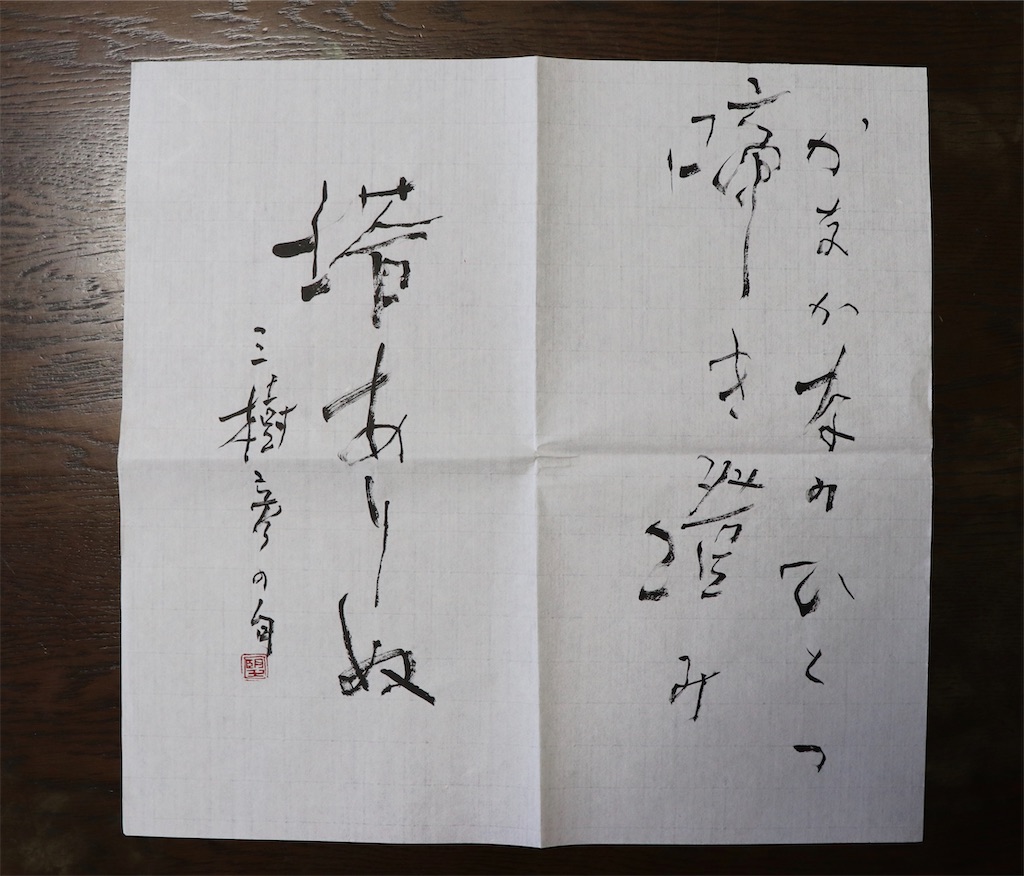 かなかなのひとつ
啼き澄み
塔ありぬ
三樹彦の句